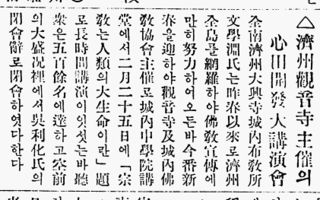 △濟州觀音寺主催의
心田開發大講演會
全南濟州大興寺城內布敎所
文學淵氏는昨春以來로濟州
全島를網羅하야佛敎宣傳에
만히努力하여오든바今番新
春을迎하야觀音寺及城內佛
敎協會主催로城內中學院講
堂에서二月二十五日에「宗
敎는人類의大生命이란」題
로長時間講演이잇섯는바聽
衆은五百餘名에達하고空前
의大盛况裡에서吳利化氏의
閉會辭로閉會하엿다한다